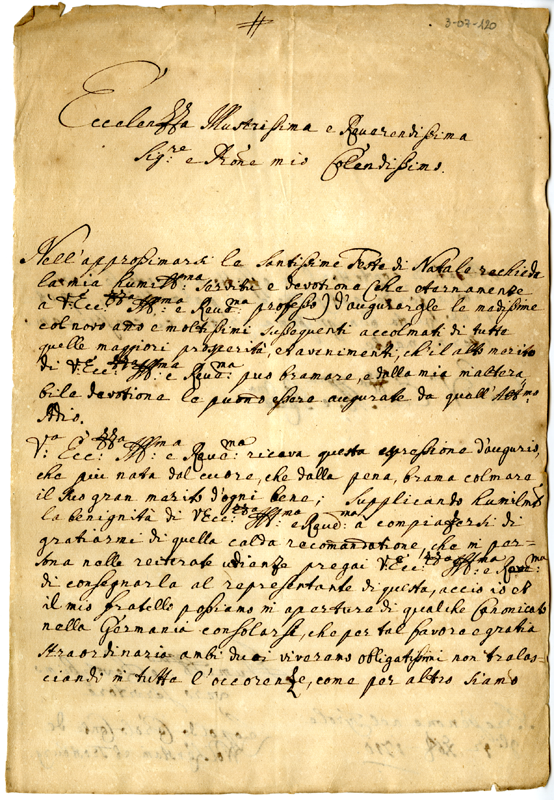 3-07-120
Eccelenza Illustrissima e Reverendissima
Sig.re e Prone mio Colendissimo.
Nell'approssimarsi le Santissime Feste di Natale rechieda
la mia humill.ma servitù e devotione (che eternamente
à V. Ecc.za Ill.ma e Reve.ma professo) d'augurargle le medesime
col novo ano e moltissimi susseguenti accolmati di tutte
quelle maggiori prosperità, et avenimenti, ch'il alto merito
di V. Ecc.za Ill.ma e Reve.ma puo bramare, e dalla mia inaltera
bile devotione le puono essere augurate da quell'Altmo
Idio.
V.ra Ecc.za Ill.ma e Reve.ma riceva questa espressione d'augurio,
che più nata dal cuore, che dalla pena, brama colmare
il suo gran merito d'ogni bene; Supplicando humilmte
la benignità di V. Ecc.za Ill.ma e Reve.ma a compiacersi di
gratiarmi di quella calda recomandatione, che in per-
sona nelle reiterate udianze pregai V. Ecc.za Ill.ma e Reve.ma
di consegnarla al representante di questa, acciò io et
il mio fratello possiamo in apertura di qualche Canonicato
nella Germania consolarsi, che per tal favore e gratia
straordinaria ambi duoi viverano obligatissimi non tralas-
ciando in tutte l'occorenze, come per altro siamo